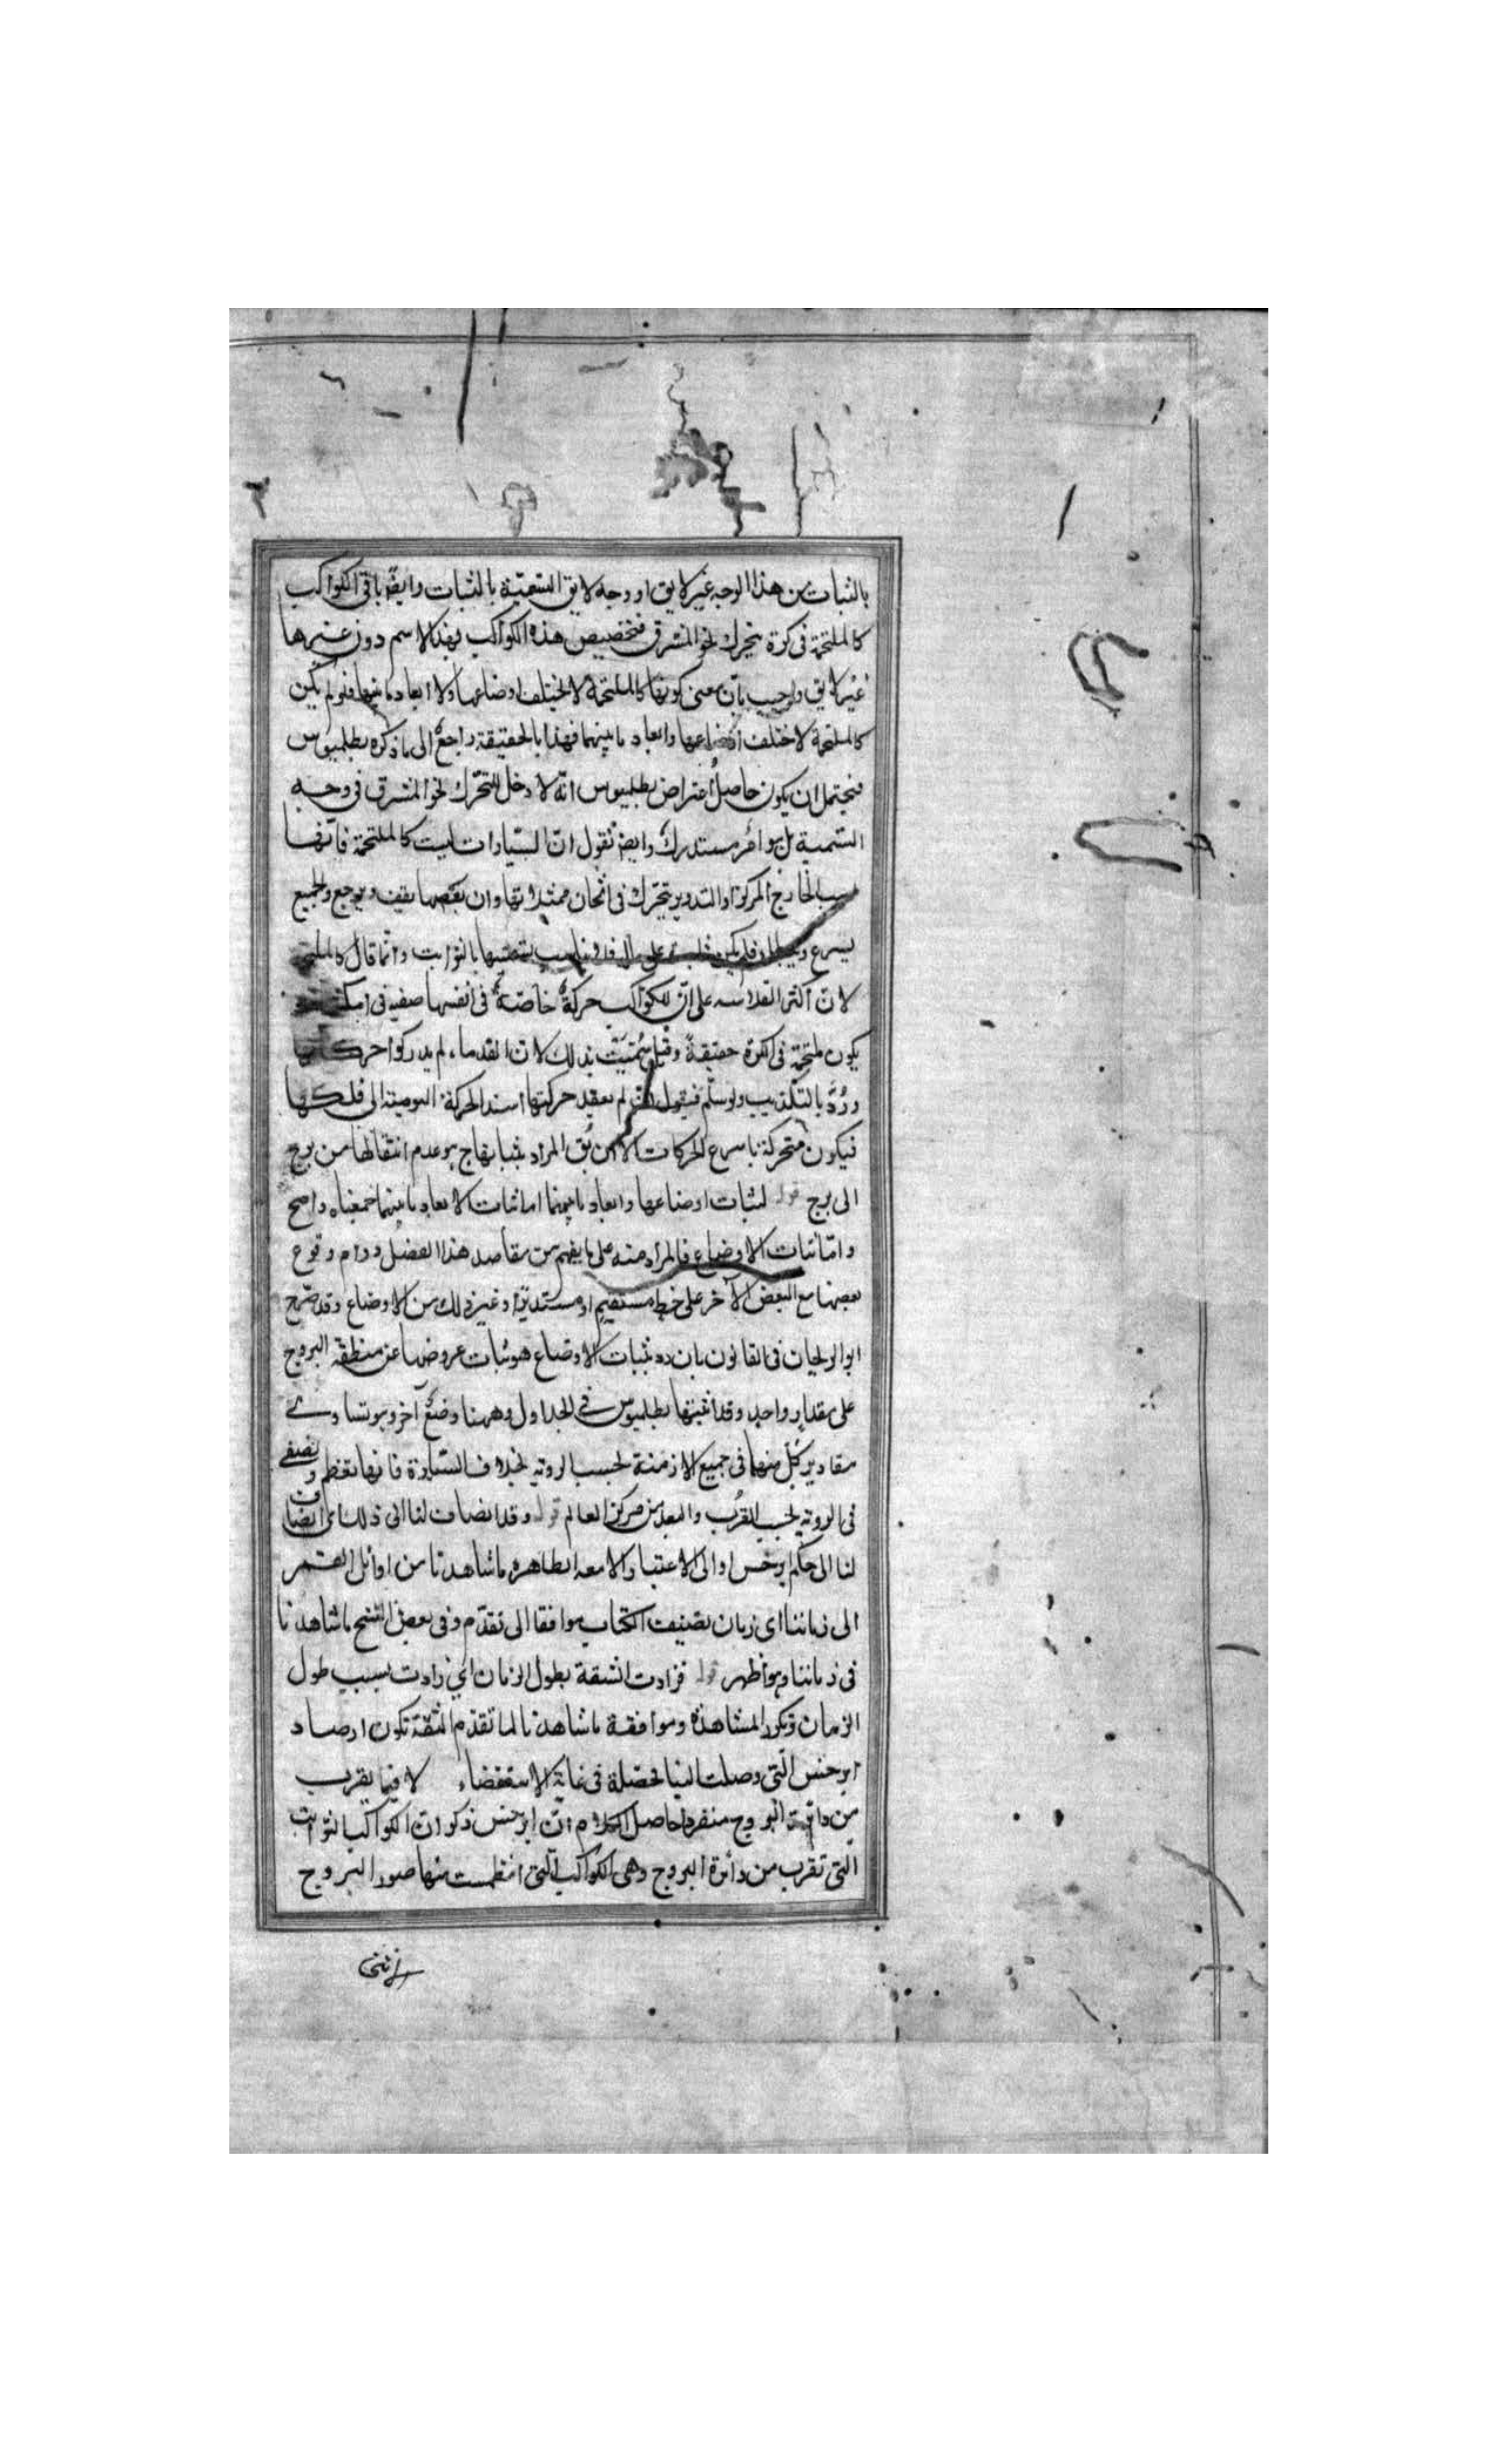 بالثبات من هذا الوجه غير لايق او وجه لايق التسمية بالثبات وايضً باقى الكواكب
كالملتحمة فى كرة يتحرك نحو المشرق فتخصيص هذه الكواكب بهذا الاسم دون غيرها
غير لايق واجيب بان معنى كونها كالملتحمة لا يختلف اوضاعها ولا ابعاد ما بينها فلو لم يكن
كالملتحمة لاختلف اوضاعها وابعاد ما بينهما فهذا بالحقيقة راجع الى ما ذكره بطلميوس
فيحتمل ان يكون حاصل اعتراض بطلميوس انّه لا دخل للتحرّك نحو المشرق فى وجه
التسمية بل هو امر مستدرك وايضً نقول انّ السيّارات ليست كالملتحمة فانّها
بسبب الخارج المركز او التدوير يتحرّك فى اثخان ممثلاتها وان بعضها يقف ويرجع والجميع
يسرع ويبطئ فلم يكن ثابتة على الفلك تسميتها بالثوابت وانّما قال كالملتحمة
لانّ اكثر الفلاسفه على انّ للكواكب حركةً خاصّة فى انفسها فى
يكون ملتحمة فى الكرة حقيقةً وقيل سُمّيَتْ بذلك لان القدماء لم يدركوا حركاتها
ورُدَّ بالتكذيب ولو سلّم فنقول من لم يعقد حركتها اسند الحركة اليومية الى فلكها
فيكون متحركة باسرع الحركات الا ان يُق المراد بثباتها ح هو عدم انتقالها من برج
الى برج قوله لثبات اوضاعها وابعاد ما بينها اما ثبات الابعاد ما بينها فمعناه واضح
وامّا ثبات الاوضاع فالمراد منه على ما يفهم من مقاصد هذا الفصل دوام وقوع
بعضها مع البعض الآخر على خط مستقيم او مستديرة او غير ذلك من الاوضاع وقد صرّح
ابو الريحان فى القانون بان ثبات الاوضاع هو ثبات عروضها عن منطقة البروج
على مقدار واحد وقد اثبتها بطلميوس فى الجداول وههنا وضع آخر وهو تساوى
مقادير كلّ منها فى جميع الازمنة بحسب الروية بخلاف السيّارة فانها تعظم وتصغر
فى الروية بحسب القُرب والبعد من مركز العالم قوله وقد انضاف لنا الى ذلك اى انضاف
لنا الى حكم ابرخس او الى الاعتبار ما شاهدنا من اوائل القمر
الى زماننا اى زمان تصنيف الكتاب موافقا الى تقدّم وفى بعض النسخ ما شاهدنا
فى زماننا وهو اظهر قوله فزادت الثقة بطول الزمان اى زادت بسبب طول
الزمان وتكرر المشاهدة وموافقة ما شاهدنا لما تقدّم الثقة بكون ارصاد
ابرخس التى وصلت الينا محصّلة فى غاية الاستقصاء لا فيما يقرب
من دائرة البروج منفردا حاصل الكلام انّ ابرخس ذكر ان الكواكب الثوابت
التى تقرب من دائرة البروج وهى الكواكب التى انتظمت منها صور البروج